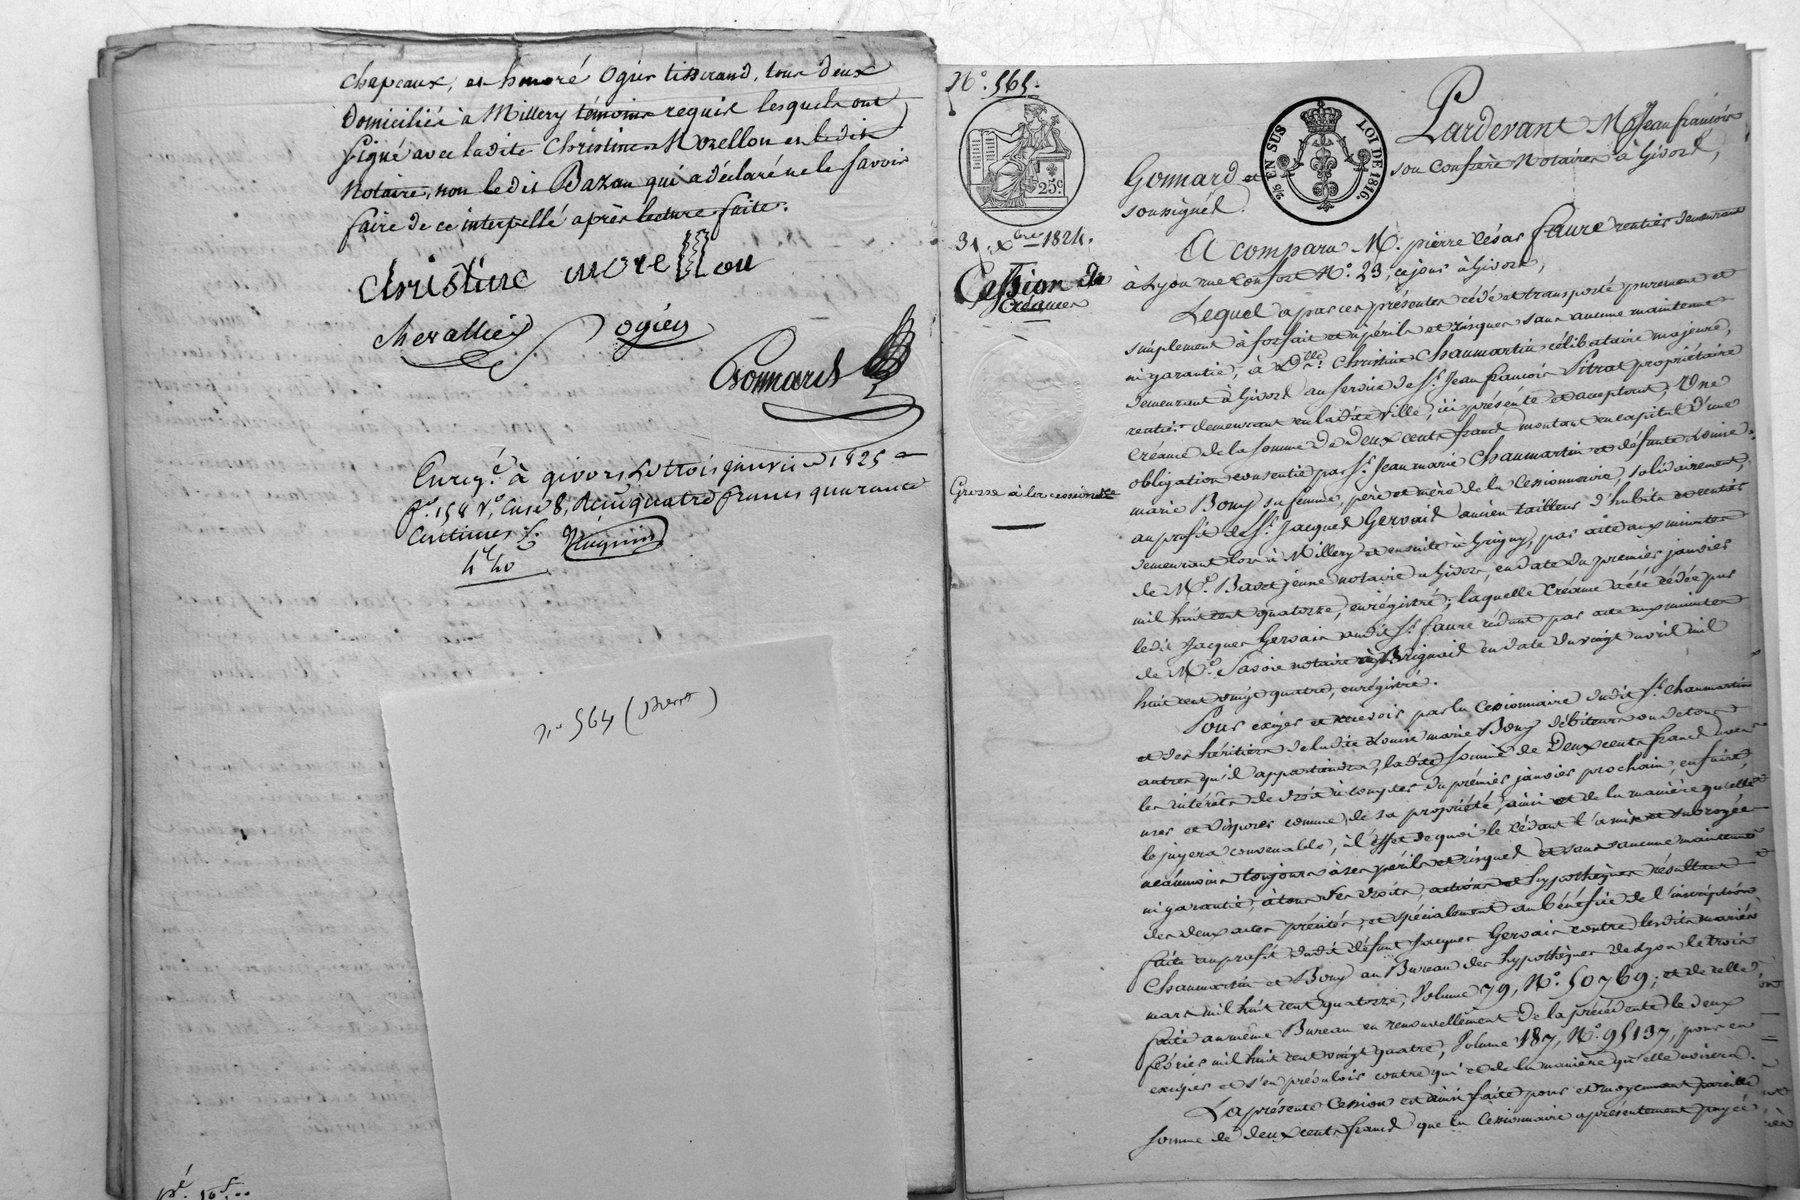 chapeaux, et honoré Ogier tisserand, tous deux
Domiciliés à Millery témoins requis lesquels ont
signé avec ladite Christine Morellon et ledit
Notaire, non ledit Bazan qui a déclaré ne le savoir
faire de ce interpellé après lecture faite.
christine morellon
chevallier ogier
Gonnard
Enreg.é à givors le trois janvier 1825
f.o 158 v.o Case 8, Reçu quatre francs quarante
Centimes
4f 40
n.o 564 (
N.o 565.
25c
31. Xbre 1824.
Cession de
Créances
Grosse à la cessionnaire
2/5 EN SUS
LOI DE 1816.
Pardevant M.e Jean françois
Gonnard et son Confrère Notaires à Givors,
soussignés.
A comparu M. pierre César faure rentier demeurant
à Lyon rue Confort N.o 23, ce jour à Givors,
Lequel a par ces présentes cédé et transporté purement et
simplement à forfait et à périls et risques sans aucune maintenue
ni garantie, à D.lle Christine Chaumartin célibataire majeure,
demeurant à Givors au service de S.r Jean françois Sitrat propriétaire
rentier demeurant en la dite ville, ici présente et acceptant, Une
créance de la somme de deux cents francs montant en capital d'une
obligation consentie par S.r Jean marie Chaumartin et défunte Louise
marie Bony sa femme, père et mère de la Cessionnaire, solidairement,
au profit de S.r Jacques Gervais ancien tailleur d'habits
demeurant lors à Millery et ensuite à Grigny, par acte aux minutes
de M.e Badet jeune notaire à Givors, en date du premier janvier
mil huit cent quatorze, enrégistré; laquelle Créance a été cédée par
ledit Jacques Gervais audit S.r faure cédant par acte aux minutes
de M.e Savoie notaire à Brignais en date du vingt avril mil
huit cent vingt quatre, enrégistré.
Pour exiger et recevoir par la Cessionnaire dudit S.r Chaumartin
et des héritiers de ladite Louise marie Bony débiteurs ou de tous
autres qu'il appartiendra, ladite somme de Deux cents francs avec
les intérêts de droit à compter du premier janvier prochain, en faire,
user et disposer comme de sa propriété, ainsi et de la manière qu'elle
le jugera convenable, à l'effet de quoi le cédant l'a mise et subrogée
néanmoins toujours à ses périls et risques et sans aucune maintenue
ni garantie, à tous ses droits, actions et hypothèques résultant
des deux actes précités, et spécialement au bénéfice de l'inscription
faite au profit dudit défunt Jacques Gervais contre lesdits mariés
Chaumartin et Bony au Bureau des hypothèques de Lyon le trois
mars mil huit cent quatorze, Volume 79, N.o 50769; et de celle
faite au même Bureau en renouvellement de la précédente le deux
février mil huit cent vingt quatre, Volume 187, N.o 95137, pour en
exciper et s'en prévaloir contre qui et de la manière qu'elle avisera.
La présente Cession est ainsi faite pour et moyennant pareille
somme de deux cents francs que la Cessionnaire a présentement payée